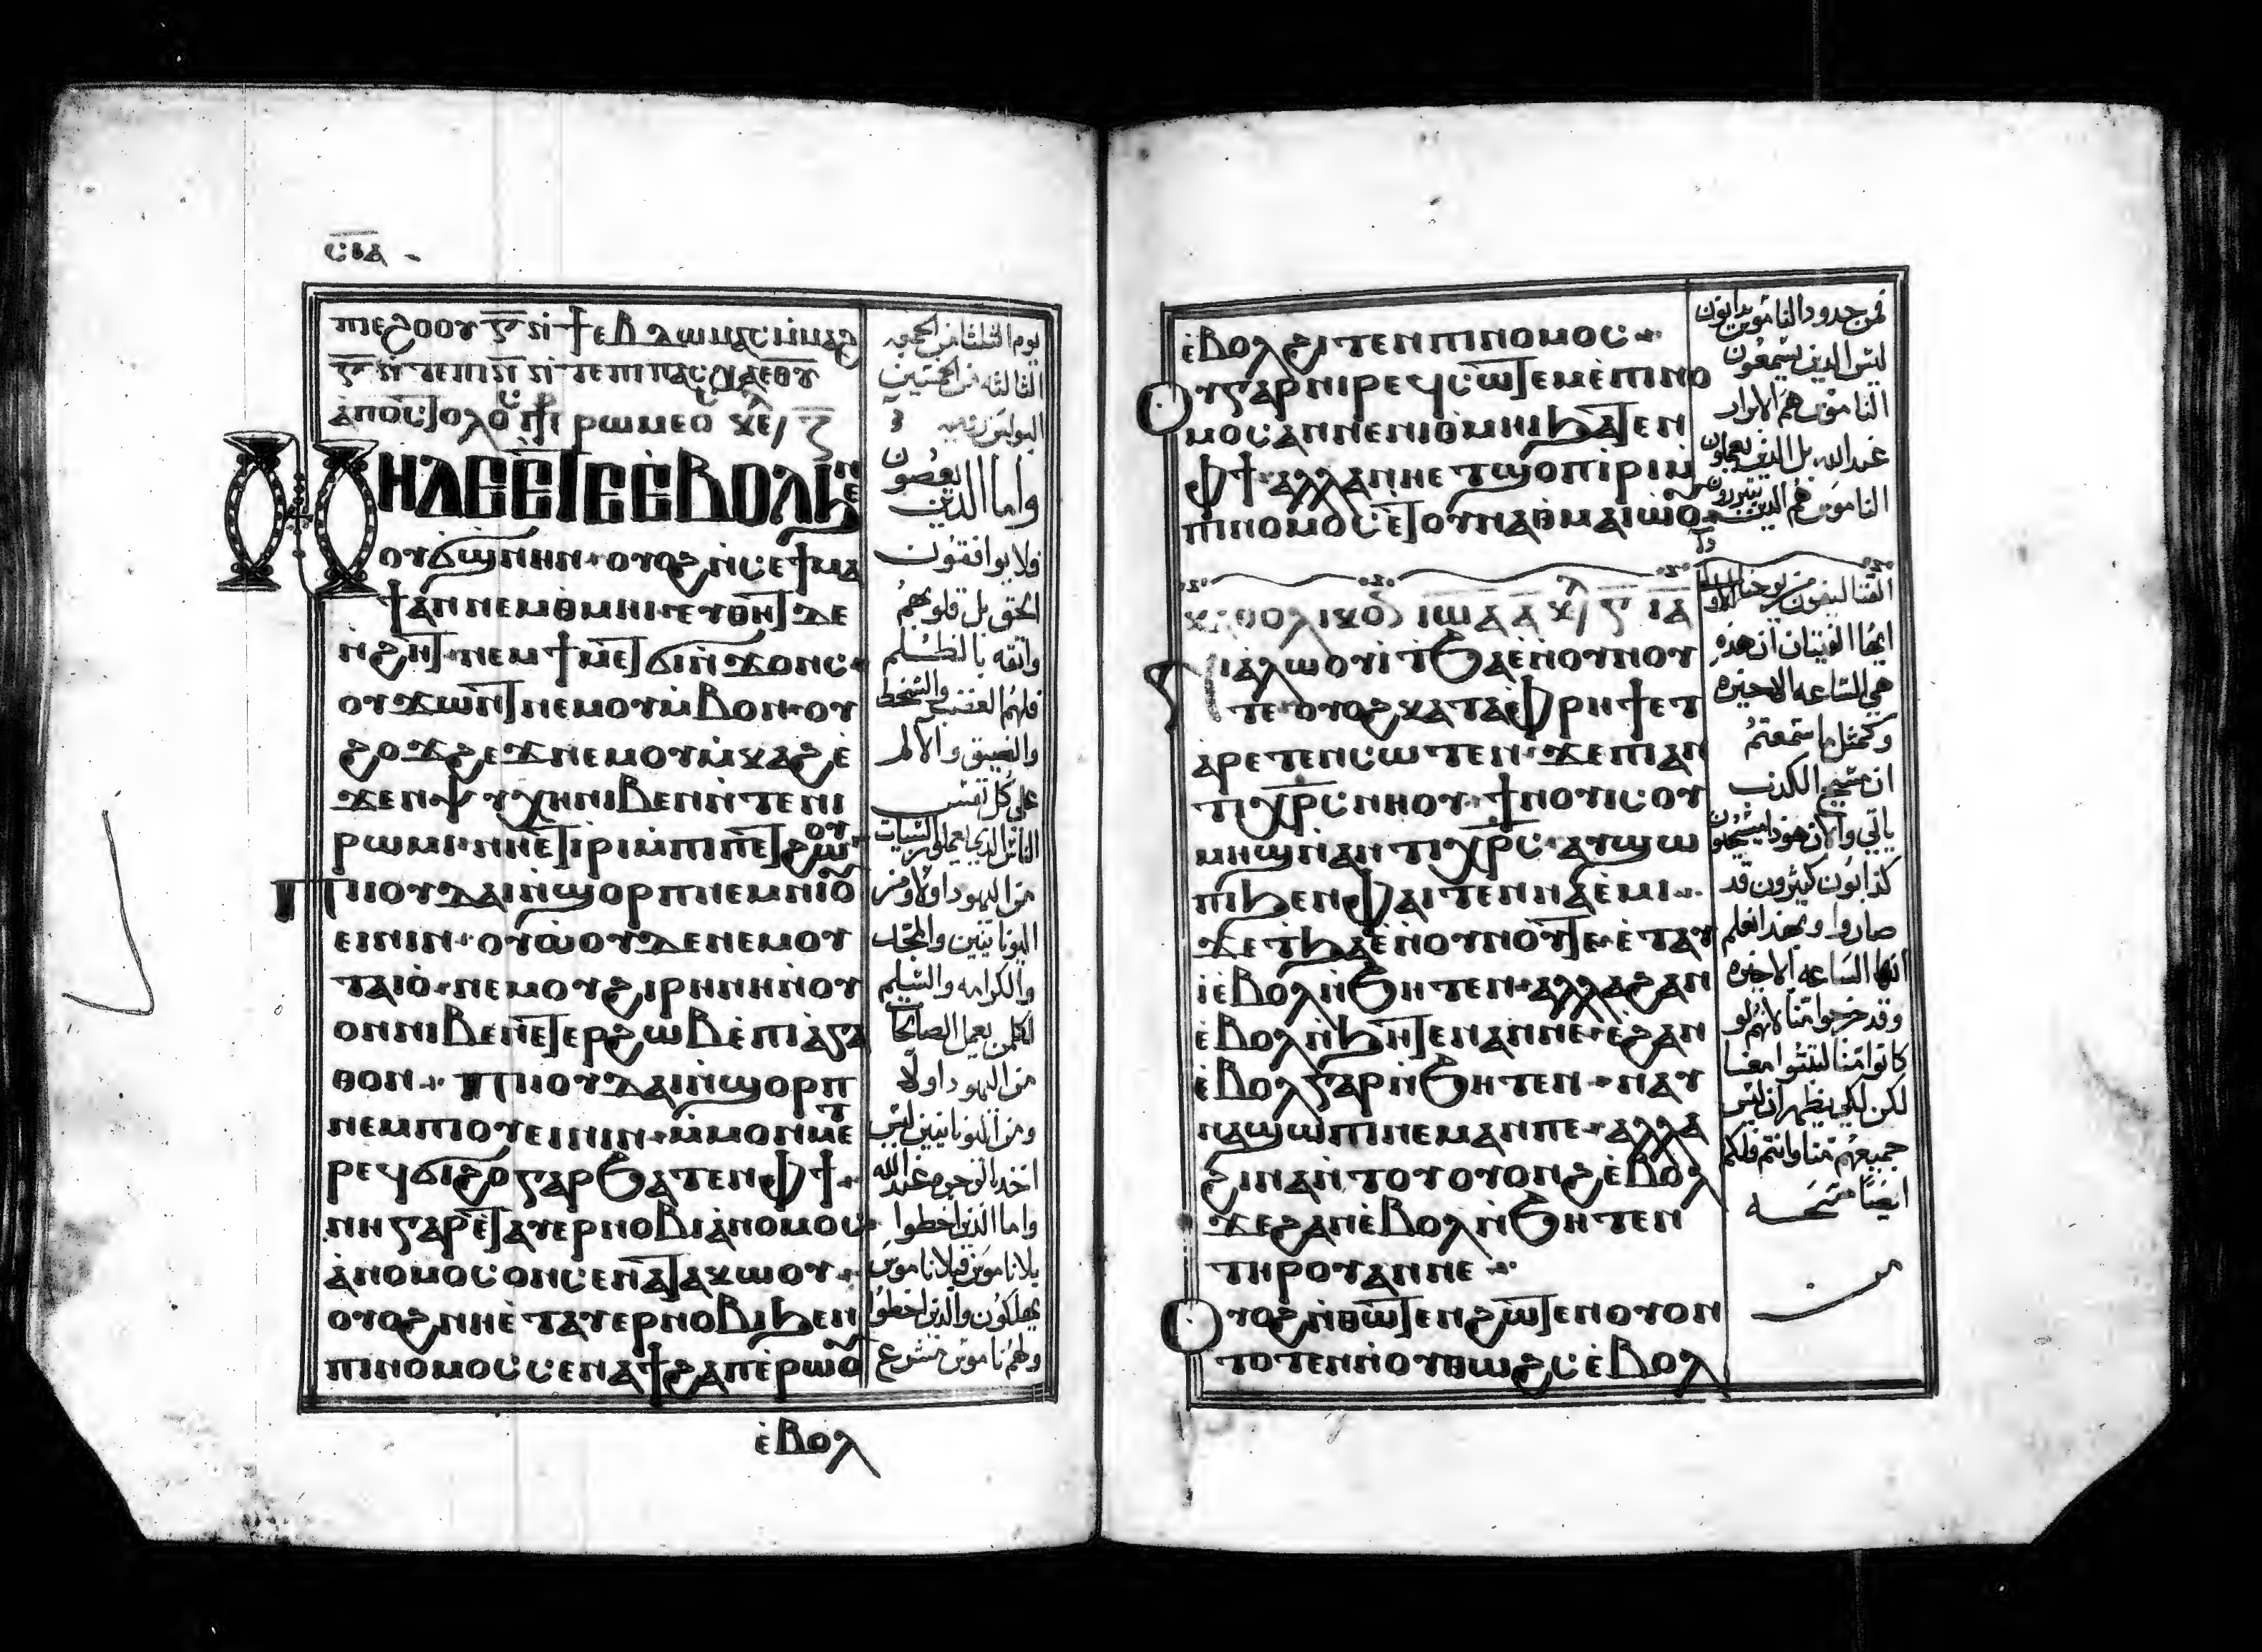 ⲥⲓⲁ
ⲡⲓⲉϩⲟⲟⲩ
ⲁⲡⲟⲥⲧⲟⲗⲟⲥ ⲣⲱⲙⲉⲟⲥ ⲕⲉ
ⲛⲏⲇⲉ ⲉⲧⲉ ⲉⲃⲟⲗϧⲉⲛ
ⲟⲩϭϣⲛⲏⲛ · ⲟⲩⲟϩ ⲛ̀ⲥⲉϯⲙⲁ
ϯ ⲁⲛ ⲛⲉⲙ ⲑⲙⲏⲓ · ⲉⲩⲑⲏⲧ ⲇⲉ
ⲛ̀ϩⲏⲧ · ⲛⲉⲙ ϯⲙⲉⲧϭⲓⲛ̀ϫⲟⲛⲥ ·
ⲟⲩϫⲱⲛⲧ ⲛⲉⲙ ⲟⲩⲙ̀ⲃⲟⲛ · ⲟⲩ
ϩⲟϫϩⲉϫ ⲛⲉⲙ ⲟⲩⲙ̀ⲕⲁϩ ⲉ̀
ϫⲉⲛ ⲯⲩⲭⲏ ⲛⲓⲃⲉⲛ ⲛ̀ⲧⲉ ⲛⲓ
ⲣⲱⲙⲓ · ⲛⲏ ⲉⲧⲓⲣⲓ ⲙ̀ⲡⲓⲡⲉⲧϩⲱⲟⲩ
ⲡⲓⲓⲟⲩⲇⲁⲓ ⲛ̀ϣⲟⲣⲡ ⲛⲉⲙ ⲛⲓⲟⲩ
ⲉⲓⲛⲓⲛ · ⲟⲩⲱ̀ⲟⲩ ⲇⲉ ⲛⲉⲙ ⲟⲩ
ⲧⲁⲓⲟ̀ · ⲛⲉⲙ ⲟⲩϩⲓⲣⲏⲛⲏ ⲛ̀ⲟⲩ
ⲟⲛ ⲛⲓⲃⲉⲛ ⲉⲧⲉⲣϩⲱⲃ ⲉ̀ⲡⲓⲁ̀ⲅⲁ
ⲑⲟⲛ · ⲡⲓⲓⲟⲩⲇⲁⲓ ⲛ̀ϣⲟⲣⲡ
ⲛⲉⲙ ⲡⲓⲟⲩⲉⲓⲛⲓⲛ · ⲙ̀ⲙⲟⲛ ⲙⲉⲧ
ⲣⲉϥϭⲓϩⲟ ⲅⲁⲣ ϧⲁⲧⲉⲛ ⲫϯ ·
ⲛⲏ ⲅⲁⲣ ⲉⲧⲁⲩⲉⲣⲛⲟⲃⲓ ⲁ̀ⲛⲟⲙⲟⲥ
ⲁ̀ⲛⲟⲙⲟⲥ ⲟⲛ ⲥⲉⲛⲁⲧⲁⲕⲱⲟⲩ ·
ⲟⲩⲟϩ ⲛⲏ ⲉ̀ⲧⲁⲩⲉⲣⲛⲟⲃⲓ ϧⲉⲛ
ⲡⲓⲛⲟⲙⲟⲥ ⲥⲉⲛⲁϯϩⲁⲡ ⲉ̀ⲣⲱⲟⲩ
ⲉ̀ⲃⲟⲗ
يوم الثلثا من الجمعه
الثالثه من الخمسين
واما الذين يعصون
فلا يوافقون
الحق بل قلوبهم
واثقه بالظلم
فلهم الغضب والسخط
والضيق والالم
على كل نفس
الناس الذي يعمل السيات
من اليهود اولا ومن
اليونانيين والمجد
والكرامه والسليم
لكلمن يعمل الصالحا
من اليهود اولا
ومن اليونانيين ليس
اخذ الوجوه عند الله
واما الذين اخطوا
بلا ناموس فبلا ناموس
يهلكون والذين اخطوا
ولهم ناموس
ⲉ̀ⲃⲟⲗ ϩⲓⲧⲉⲛ ⲡⲓⲛⲟⲙⲟⲥ ·
ⲟⲩ ⲅⲁⲣ ⲛⲓⲣⲉϥⲥⲱⲧⲉⲙ ⲉ̀ⲡⲓⲛⲟ
ⲙⲟⲥ ⲁⲛ ⲛⲉ ⲛⲓⲑⲙⲏⲓ ϧⲁⲧⲉⲛ
ⲫϯ · ⲁⲗⲗⲁ ⲛⲏ ⲉⲧϣⲟⲡ ⲓⲣⲓ ⲙ
ⲡⲓⲛⲟⲙⲟⲥ ⲉⲧⲟⲩⲛⲁⲑⲙⲁⲓⲱⲟⲩ
ⲕⲁⲑⲟⲗⲓⲕⲟⲛ ⲓⲱⲁ ⲁ̅ ⲕⲉ ⲓⲁ
ⲛⲓⲁⲗⲱⲟⲩⲓ̀ ⲧϧⲁⲉ̀ ⲛ̀ⲟⲩⲛⲟⲩ
ⲧⲉ · ⲟⲩⲟϩ ⲕⲁⲧⲁ ⲫⲣⲏϯ ⲉⲧ
ⲁⲣⲉⲧⲉⲛⲥⲱⲧⲉⲙ · ϫⲉ ⲡⲓⲁⲛ
ⲧⲓⲭⲣ̅ⲥ ⲛⲏⲟⲩ · ϯⲛⲟⲩ ⲓⲥ ⲟⲩ
ⲙⲏϣ ⲛ̀ⲁⲛⲧⲓⲭⲣ̅ⲥ · ⲁⲩϣⲱ
ⲡⲓ ϧⲉⲛ ⲫⲁⲓ ⲧⲉⲛⲛⲁⲉ̀ⲙⲓ ·
ϫⲉ ⲧϧⲁⲉ̀ ⲛ̀ⲟⲩⲛⲟⲩ ⲧⲉ · ⲉ̀ⲧⲁⲩ
ⲓ̀ ⲉ̀ⲃⲟⲗ ⲛ̀ϧⲏⲧⲉⲛ · ⲁⲗⲗⲁ ϩⲁⲛ
ⲉ̀ⲃⲟⲗ ⲛ̀ϧⲏⲧⲉⲛ ⲁⲛ ⲛⲉ · ⲉ̀ϩⲁⲛ
ⲉ̀ⲃⲟⲗ ⲅⲁⲣ ⲛ̀ϧⲏⲧⲉⲛ · ⲛⲁⲩ
ⲛⲁϣⲱⲡⲓ ⲛⲉⲙⲁⲛ ⲡⲉ · ⲁⲗⲗⲁ
ϩⲓⲛⲁ ⲛ̀ⲧⲟⲩⲟⲩⲟⲛϩ ⲉ̀ⲃⲟⲗ
ϫⲉ ϩⲁⲛ ⲉ̀ⲃⲟⲗ ⲛ̀ϧⲏⲧⲉⲛ
ⲧⲏⲣⲟⲩ ⲁⲛ ⲛⲉ ·
ⲟⲩⲟϩ ⲛ̀ⲑⲱⲧⲉⲛ ϩⲱⲧⲉⲛ ⲟⲩⲟⲛ
ⲧⲟⲧⲉⲛ ⲛ̀ⲟⲩⲑⲱϩⲥ ⲉ̀ⲃⲟⲗ
فمن حدود الناموس يدانون
ليس الذين يسمعون
الناموس هم الابرار
عند الله بل الذين يعملون
الناموس هم الذين يتبررون
القتاليقون من يوحنا الاولى
ايها الفتيان ان هذه
هي الساعه الاخيره
وكمثل ما سمعتم
ان مسيح الكذب
ياتي والان هوذا مسيحون
كذابون كثيرون قد
صاروا وبهذا نعلم
انها الساعه الاخيره
وقد خرجوا منا لانهم لو
كانوا منا لثبتوا معنا
لكن لكي يظهر ان ليس
جميعهم منا وانتم فلكم
ايضا مسحه
من